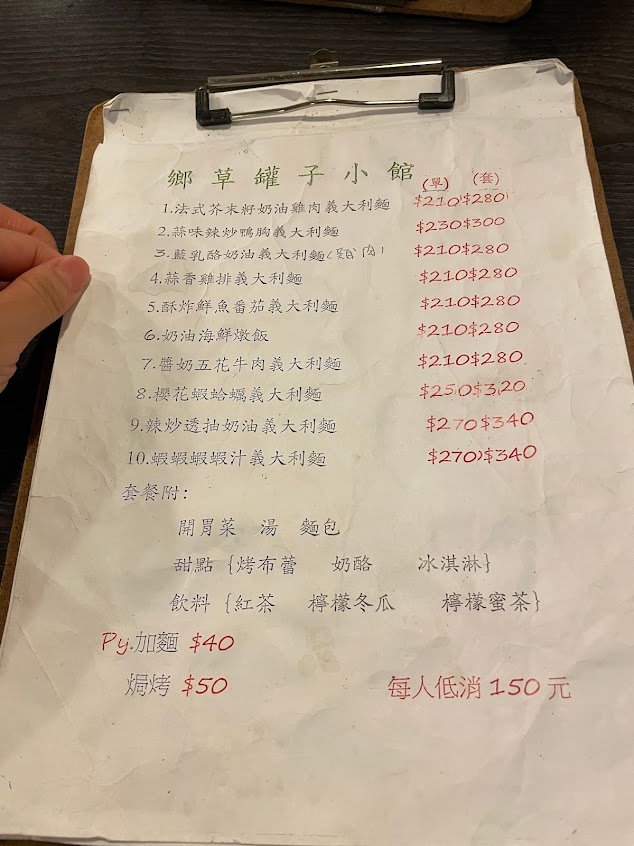 鄉草罐子小館 (單) (套)
1.法式芥末籽奶油雞肉義大利麵 $210 $280
2.蒜味辣炒鴨胸義大利麵 $230 $300
3.藍乳酪奶油義大利麵(雞肉) $210 $280
4.蒜香雞排義大利麵 $210 $280
5.酥炸鮮魚番茄義大利麵 $210 $280
6.奶油海鮮燉飯 $210 $280
7.醬奶五花牛肉義大利麵 $210 $280
8.櫻花蝦蛤蠣義大利麵 $250 $320
9.辣炒透抽奶油義大利麵 $270 $340
10.蝦蝦蝦蝦汁義大利麵 $270 $340
套餐附:
開胃菜 湯 麵包
甜點{烤布蕾 奶酪 冰淇淋}
飲料{紅茶 檸檬冬瓜 檸檬蜜茶}
Py.加麵 $40
焗烤 $50 每人低消 150 元